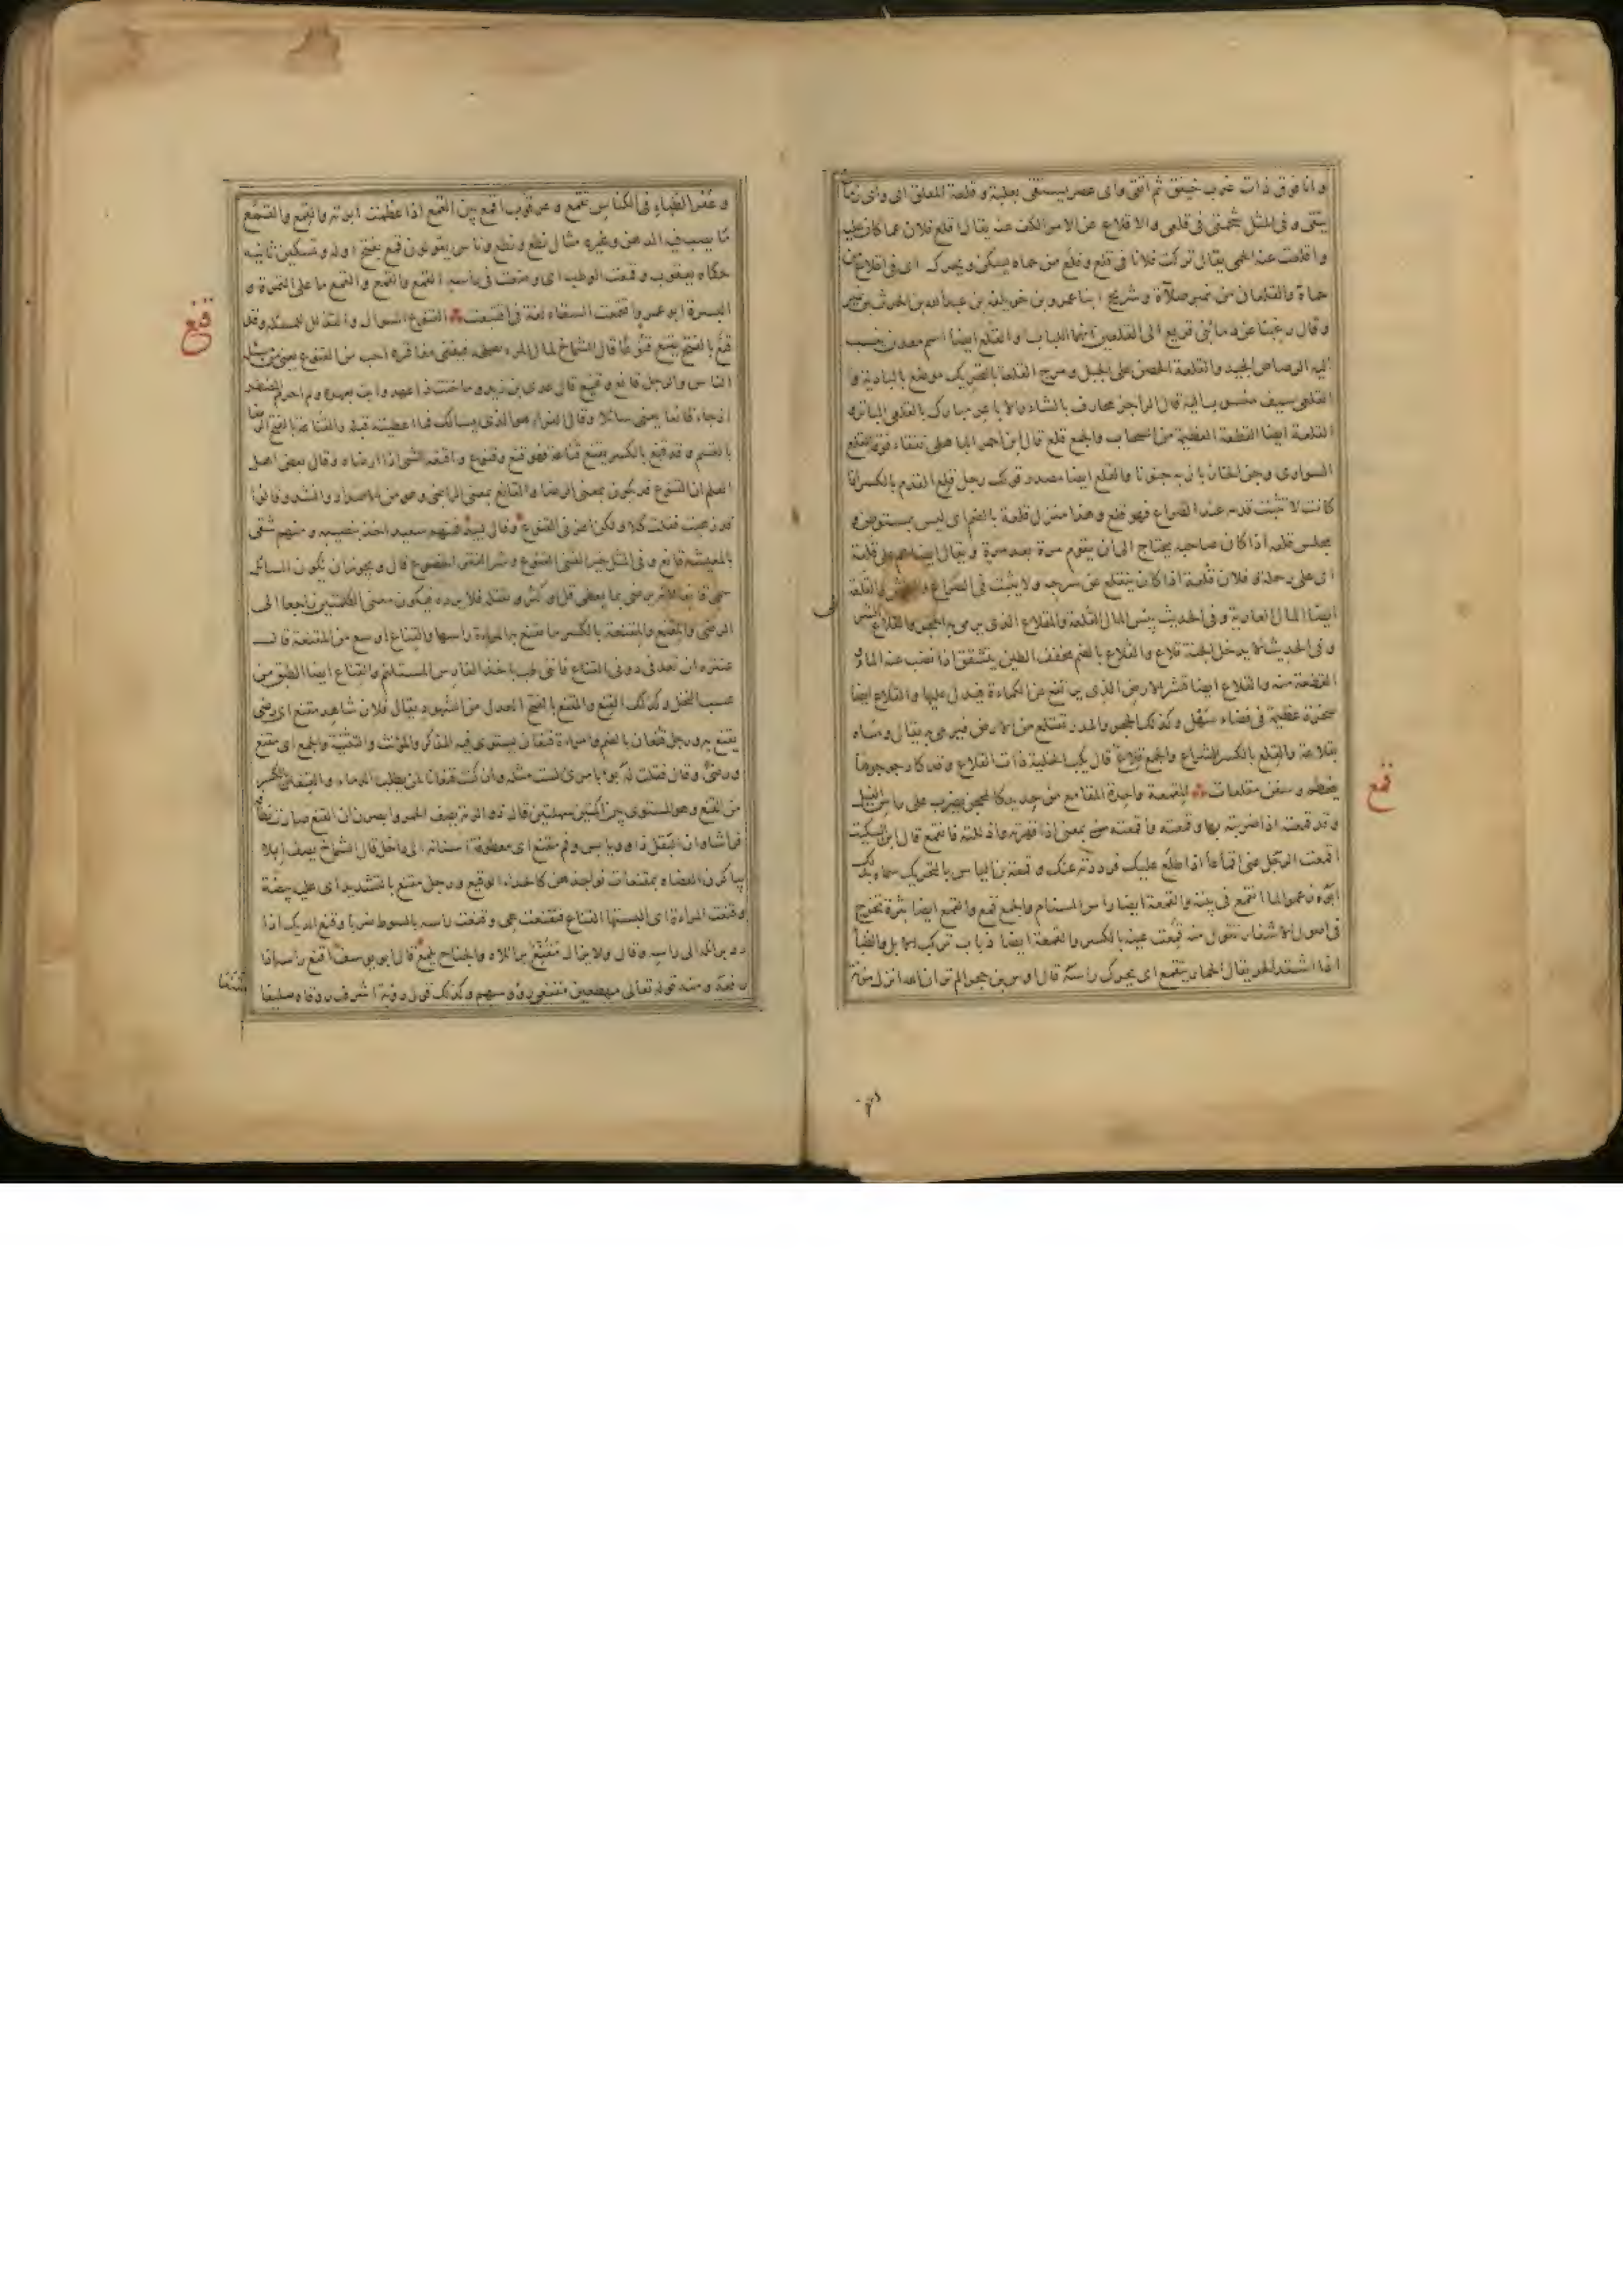 وانا فوق ذات غرب خيفق ثم اتقى واى عصر يستقى بعلبة وقلعة المعلق اى واى زمان
يتقى وفى المثل شحمتى فى قلعى والاقلاع عن الامر الكف عنه يقال اقلع فلان عما كان عليه
واقلعت عنه الحمى يقال تركت فلانا فى قلع وقلع من حماه يسكن ويحرك اى فى اقلاع من
حماه والقلعان من نمير صلاة وشريح ابنا عمرو بن خويلفة بن عبدالله بن الحرث بن نمير
وقال رغبنا عن دماء بنى قريع الى القلعين انهما اللباب والقلع ايضا اسم معدن ينسب
اليه الرصاص الجيد والقلعة الحصن على الجبل ومرج القلعة بالتحريك موضع بالبادية و
القلعى سيف منسوب اليه قال الراجز محارف بالشاء والاباعر مبارك بالقلعى الباتر و
القلعة ايضا القطعة العظيمة من السحاب والجمع قلع قال ابن احمر تفقأ فوقه القلع
السوارى وجن الخازباز به جنونا والقلع ايضا مصدر قولك رجل قلع القدم بالكسر اذا
كانت لا تثبت قدمه عند الصراع فهو قلع وهذا منزل قلعة بالضم اى ليس بمستوطن و
مجلس قلعة اذا كان صاحبه يحتاج الى ان يقوم مرة بعد مرة ويقال ايضا هم على قلعة
اى على رحلة وفلان قلعة اذا كان يتقلع عن سرجه ولا يثبت فى الصراع والقلعة
ايضا المال العارية وفى الحديث بئس المال القلعة والمقلاع الذى يرمى به الحجر والقلاع
وفى الحديث لا يدخل الجنة قلاع والقلاع بالضم مخفف الطين يتشقق اذا نضب عنه الماء
القطعة منه والقلاع ايضا قشر الارض الذى يرتفع عن الكماة فيدل عليها والقلاع ايضا
صخرة عظيمة فى فضاء سهل وكذلك الحجر والمدر يقتلع من الارض فيرمى به يقال رماه
بقلاعة والقلع بالكسر الشراع والجمع قلاع قال يكب الخلية ذات القلاع وقد كاد جوجوها
يتحطم وسفن مقلعات المقمعة واحدة المقامع من حديد كالمحجن يضرب على راس الفيل
وقد قمعته اذا ضربته بها وقمعته واقمعته بمعنى اذا قهرته واذللته فانقمع قال ابن السكيت
اقمعت الرجل عنى اقماعا اذا طلع عليك فرددته عنك وقمعة بن الياس بالتحريك سماه بذلك
ابوه انقمع فى بيته والقمعة ايضا راس السنام والجمع قمع والقمع ايضا بثرة تخرج
فى اصول الاشفار تقول منه قمعت عينه بالكسر والقمعة ايضا ذباب تركب الابل والظباء
اذا اشتد الحر يقال الحمار يتقمع اى يحرك راسه قال اوس بن حجر الم تر ان الله انزل مزنة
قمع
وعفر الظباء فى الكناس تقمع وعرقوب اقمع بين القمع اذا عظمت ابرته والقمع والقمع
ما يصب فيه الدهن وغيره مثال نطع ونطع وناس يقولون قمع بفتح اوله وتسكين ثانيه
حكاه يعقوب وقمعت الوطب اى وضعت فى راسه القمع والقمع والقمع ما على التمرة و
البسرة ابو عمرو اقتمعت السقاء لغة فى اقتبعت القنوع السوال والتذلل للمسئلة وقد
قنع بالفتح يقنع قنوعا قال الشماخ لمال المرء يصلحه فيغنى مفاقره اعف من القنوع يعنى من مسئلة
الناس والرجل قانع وقنيع قال عدى بن زيد وما خنت ذا عهد وابت بعهده ولم احرم المضطر
اذ جاء قانعا يعنى سائلا وقال الفراء هو الذى يسالك فما اعطيته قبله والقناعة بالفتح الرضا
بالقسم وقد قنع بالكسر يقنع قناعة فهو قنع وقنوع واقنعه الشئ اذا ارضاه وقال بعض اهل
العلم ان القنوع قد يكون بمعنى الرضا والقانع بمعنى الراضى وهو من الاضداد وانشد وقالوا
قد زهيت فقلت كلا ولكنى اعزنى القنوع وقال لبيد فمنهم سعيد اخذ بنصيبه ومنهم شقى
بالمعيشة قانع وفى المثل خير الغنى القنوع وشر الفقر الخضوع قال ويجوز ان يكون السائل
سمى قانعا لانه يرضى بما يعطى قل او كثر ويقبله فلا يرده فيكون معنى الكلمتين راجعا الى
الرضى والمقنع والمقنعة بالكسر ما تقنع به المراة راسها والقناع اوسع من المقنعة قال
عنترة ان تغدفى دونى القناع فاننى طب باخذ الفارس المستلئم والقناع ايضا الطبق من
عسب النخل وكذلك القنع والمقنع بالفتح العدل من الشهود يقال فلان شاهد مقنع اى رضى
يقنع به ورجل قنعان بالضم وامراة قنعان يستوى فيه المذكر والمؤنث والتثنية والجمع اى مقنع
ورضى وقال فقلت له بؤ بامرئ لست مثله وان كنت قنعانا لمن يطلب الدماء
من القنع وهو المستوى بين اكمتين سهلتين قال ذو الرمة يصف الحمر وابصرن ان القنع صارت نطافه
فراشا وان البقل ذاو ويابس وفم مقنع اى معطوفة اسنانه الى داخل قال الشماخ يصف ابلا
يباكرن العضاه بمقنعات نواجذهن كالحدا الوقيع ورجل مقنع بالتشديد اى عليه بيضة
وقنعت المراة اى البستها القناع فتقنعت هى وقنعت راسه بالسوط ضربا وقنع الديك اذا
رد برائله الى راسه وقال ولا يزال خرب مقنع برائلاه والجناح يلمع قال ابو يوسف اقنع راسه اذا
رفعه ومنه قوله تعالى مهطعين مقنعى رؤوسهم وكذلك قول رؤبة اشرف روقاه صليفا
قنع
مقنعا